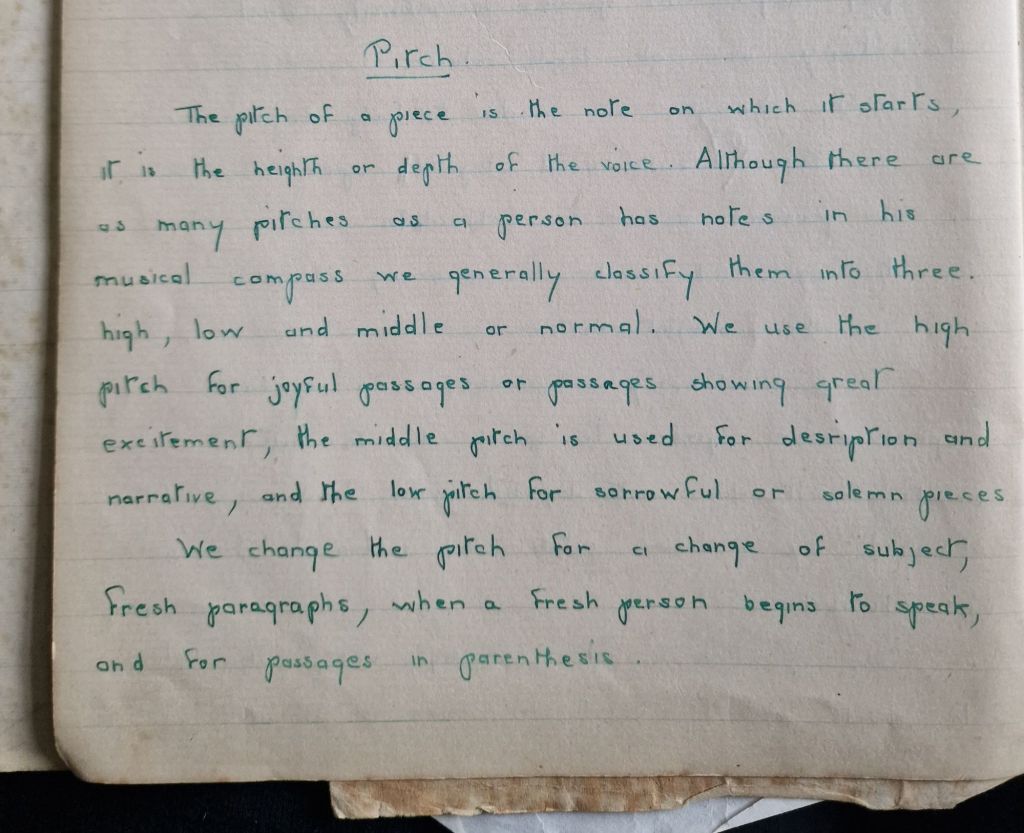 Pitch.
The pitch of a piece is the note on which it starts,
it is the heighth or depth of the voice. Although there are
as many pitches as a person has notes in his
musical compass we generally classify them into three.
high, low and middle or normal. We use the high
pitch for joyful passages or passages showing great
excitement, the middle pitch is used for desription and
narrative, and the low pitch for sorrowful or solemn pieces
We change the pitch for a change of subject,
fresh paragraphs, when a fresh person begins to speak,
and for passages in parenthesis.